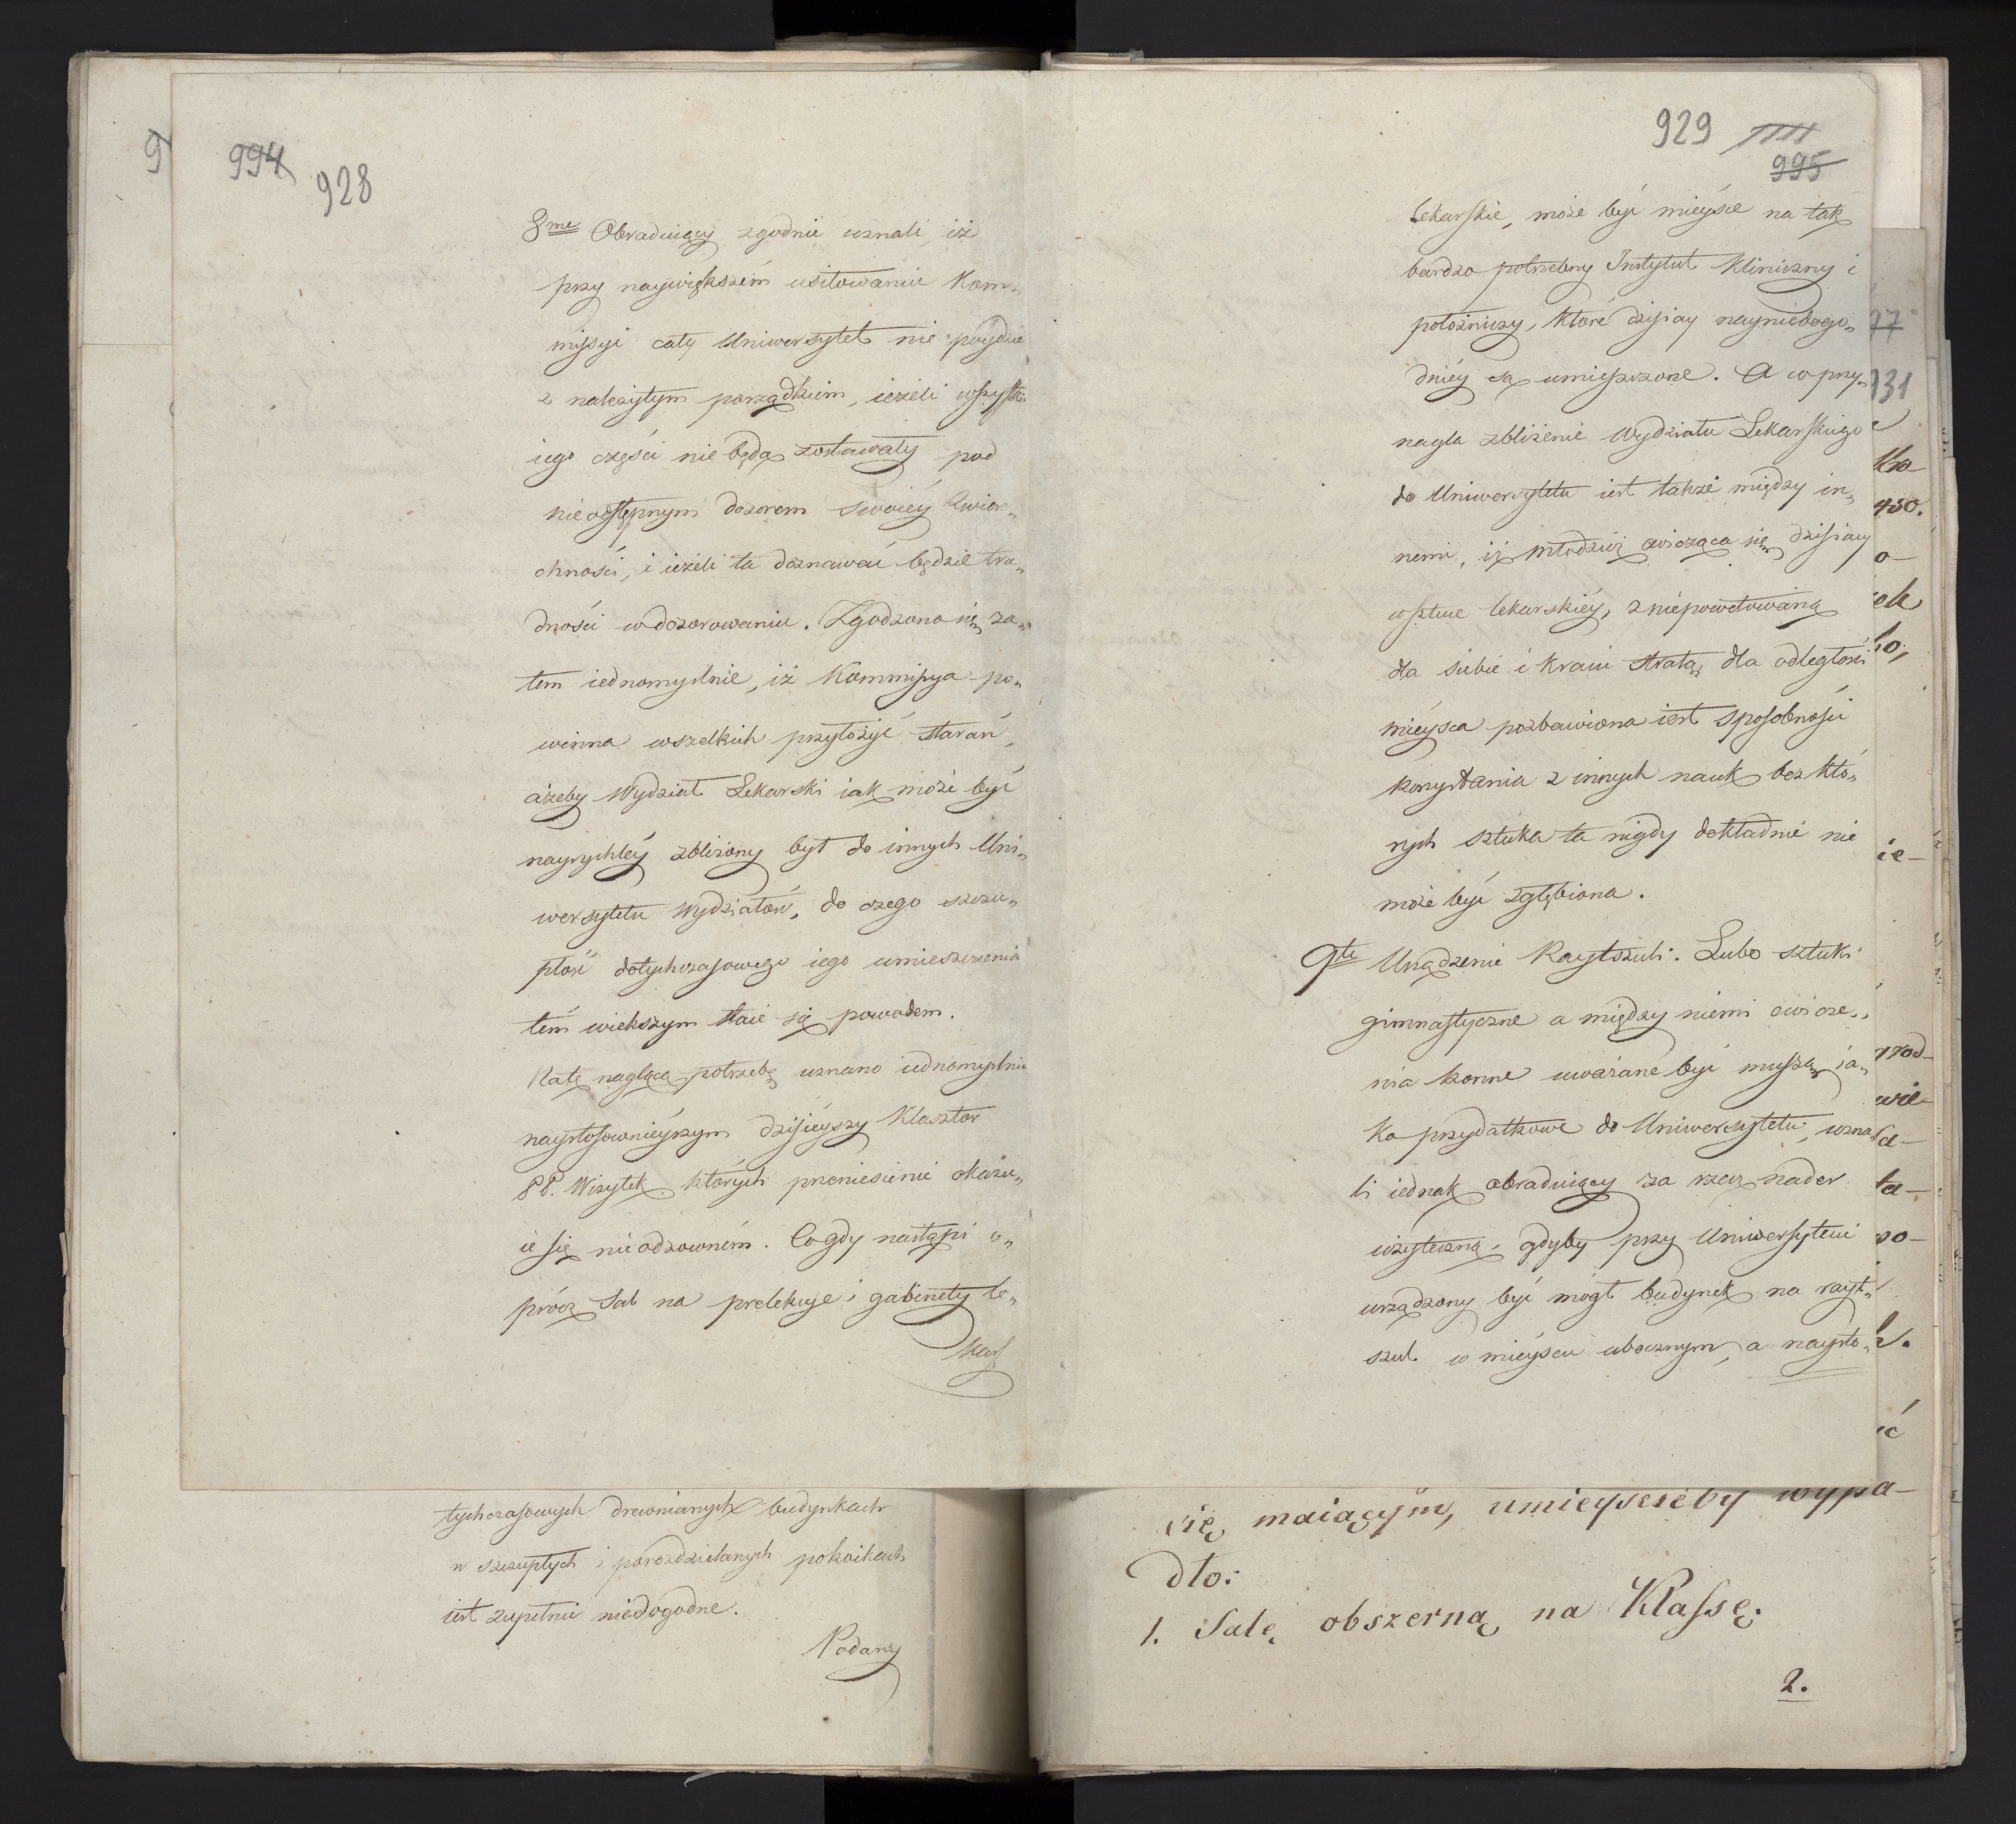 994
928
8me Obraduiący zgodnie uznali, iż
przy naywiększém usiłowaniu Kom„
missyi cały Uniwersytet nie póydzie
z należytym porządkiem, ieżeli wszystkie
iego części nie będą zostawały pod
nieodstępnym dozorem swoiéy Zwierz„
chności, i ieżeli ta doznawać będzie tru„
dności w dozorowaniu. Zgodzono się za„
tem iednomyślnie, iż Kommissya po„
winna wszelkich przyłożyć starań,
ażeby Wydział Lekarski iak może być
nayrychléy zbliżony był do innych Uni„
wersytetu Wydziałów, do czego szczu„
płość dotychczasowego iego umieszczenia
tém większym staie się powodem.
Na tę naglącą potrzebę uznano iednomyślnie
naystosownieyszym dzisieyszy Klasztor
PP. Wizytek których przeniesienie okazu„
ie się nieodzowném. Co gdy nastąpi o„
prócz Sal na prelekcye i gabinety le„
kars
tychczasowych drewnianych budynkach
w szczupłych i porozdzielanych pokoikach
iest zupełnie niedogodne.
Podany
929
995
lekarskie, może być mieysce na tak
bardzo potrzebny Instytut Kliniczny i
położniczy, które dzisiay nayniedogo„
dniéy są umieszczone. A co przy„
nagla zbliżenie Wydziału Lekarskiego
do Uniwersytetu iest także między in„
nemi, iż młodzież ćwicząca się dzisiay
w sztuce lekarskiéy, z niepowetowaną
dla siebie i kraiu stratą, dla odległości
mieysca pozbawiona iest sposobności
korzystania z innych nauk bez któ„
rych sztuka ta nigdy dokładnie nie
może być zgłębiona.
9te Urządzenie Raytszuli. Lubo sztuki
gimnastyczne a między niemi ćwicze„
nia konne uważane być muszą ia„
ko przydatkowe do Uniwersytetu, uzna
li iednak obraduiący za rzecz nader
użyteczną, gdyby przy Uniwersytecie
urządzony być mógł budynek na rayt„
szul. w mieyscu ubocznym, a naysto„
931
cię maiącym, umieyscićby wypa-
dło:
1. Salę obszerną na Klassę.
2.